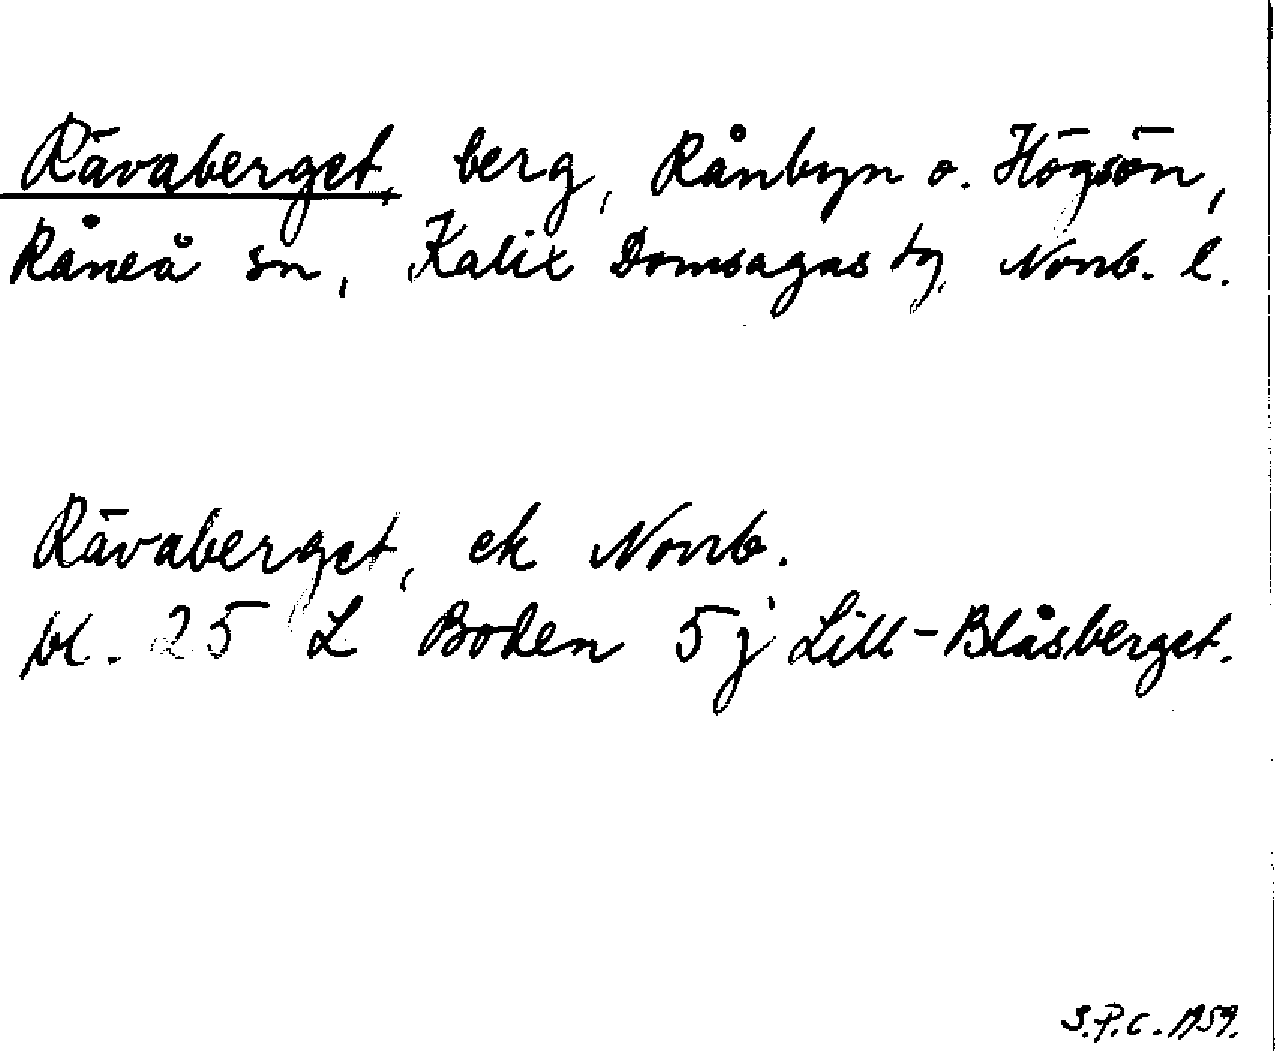 Rävaberget, berg, Rånbyn o. Högsön,
Råneå sn, Kalix Domsagas tg. Norrb. l.
Rävaberget, ek Norrb.
bl. 25 L Boden 5j Lill-Blåsberget.
S.P.C. 1959.